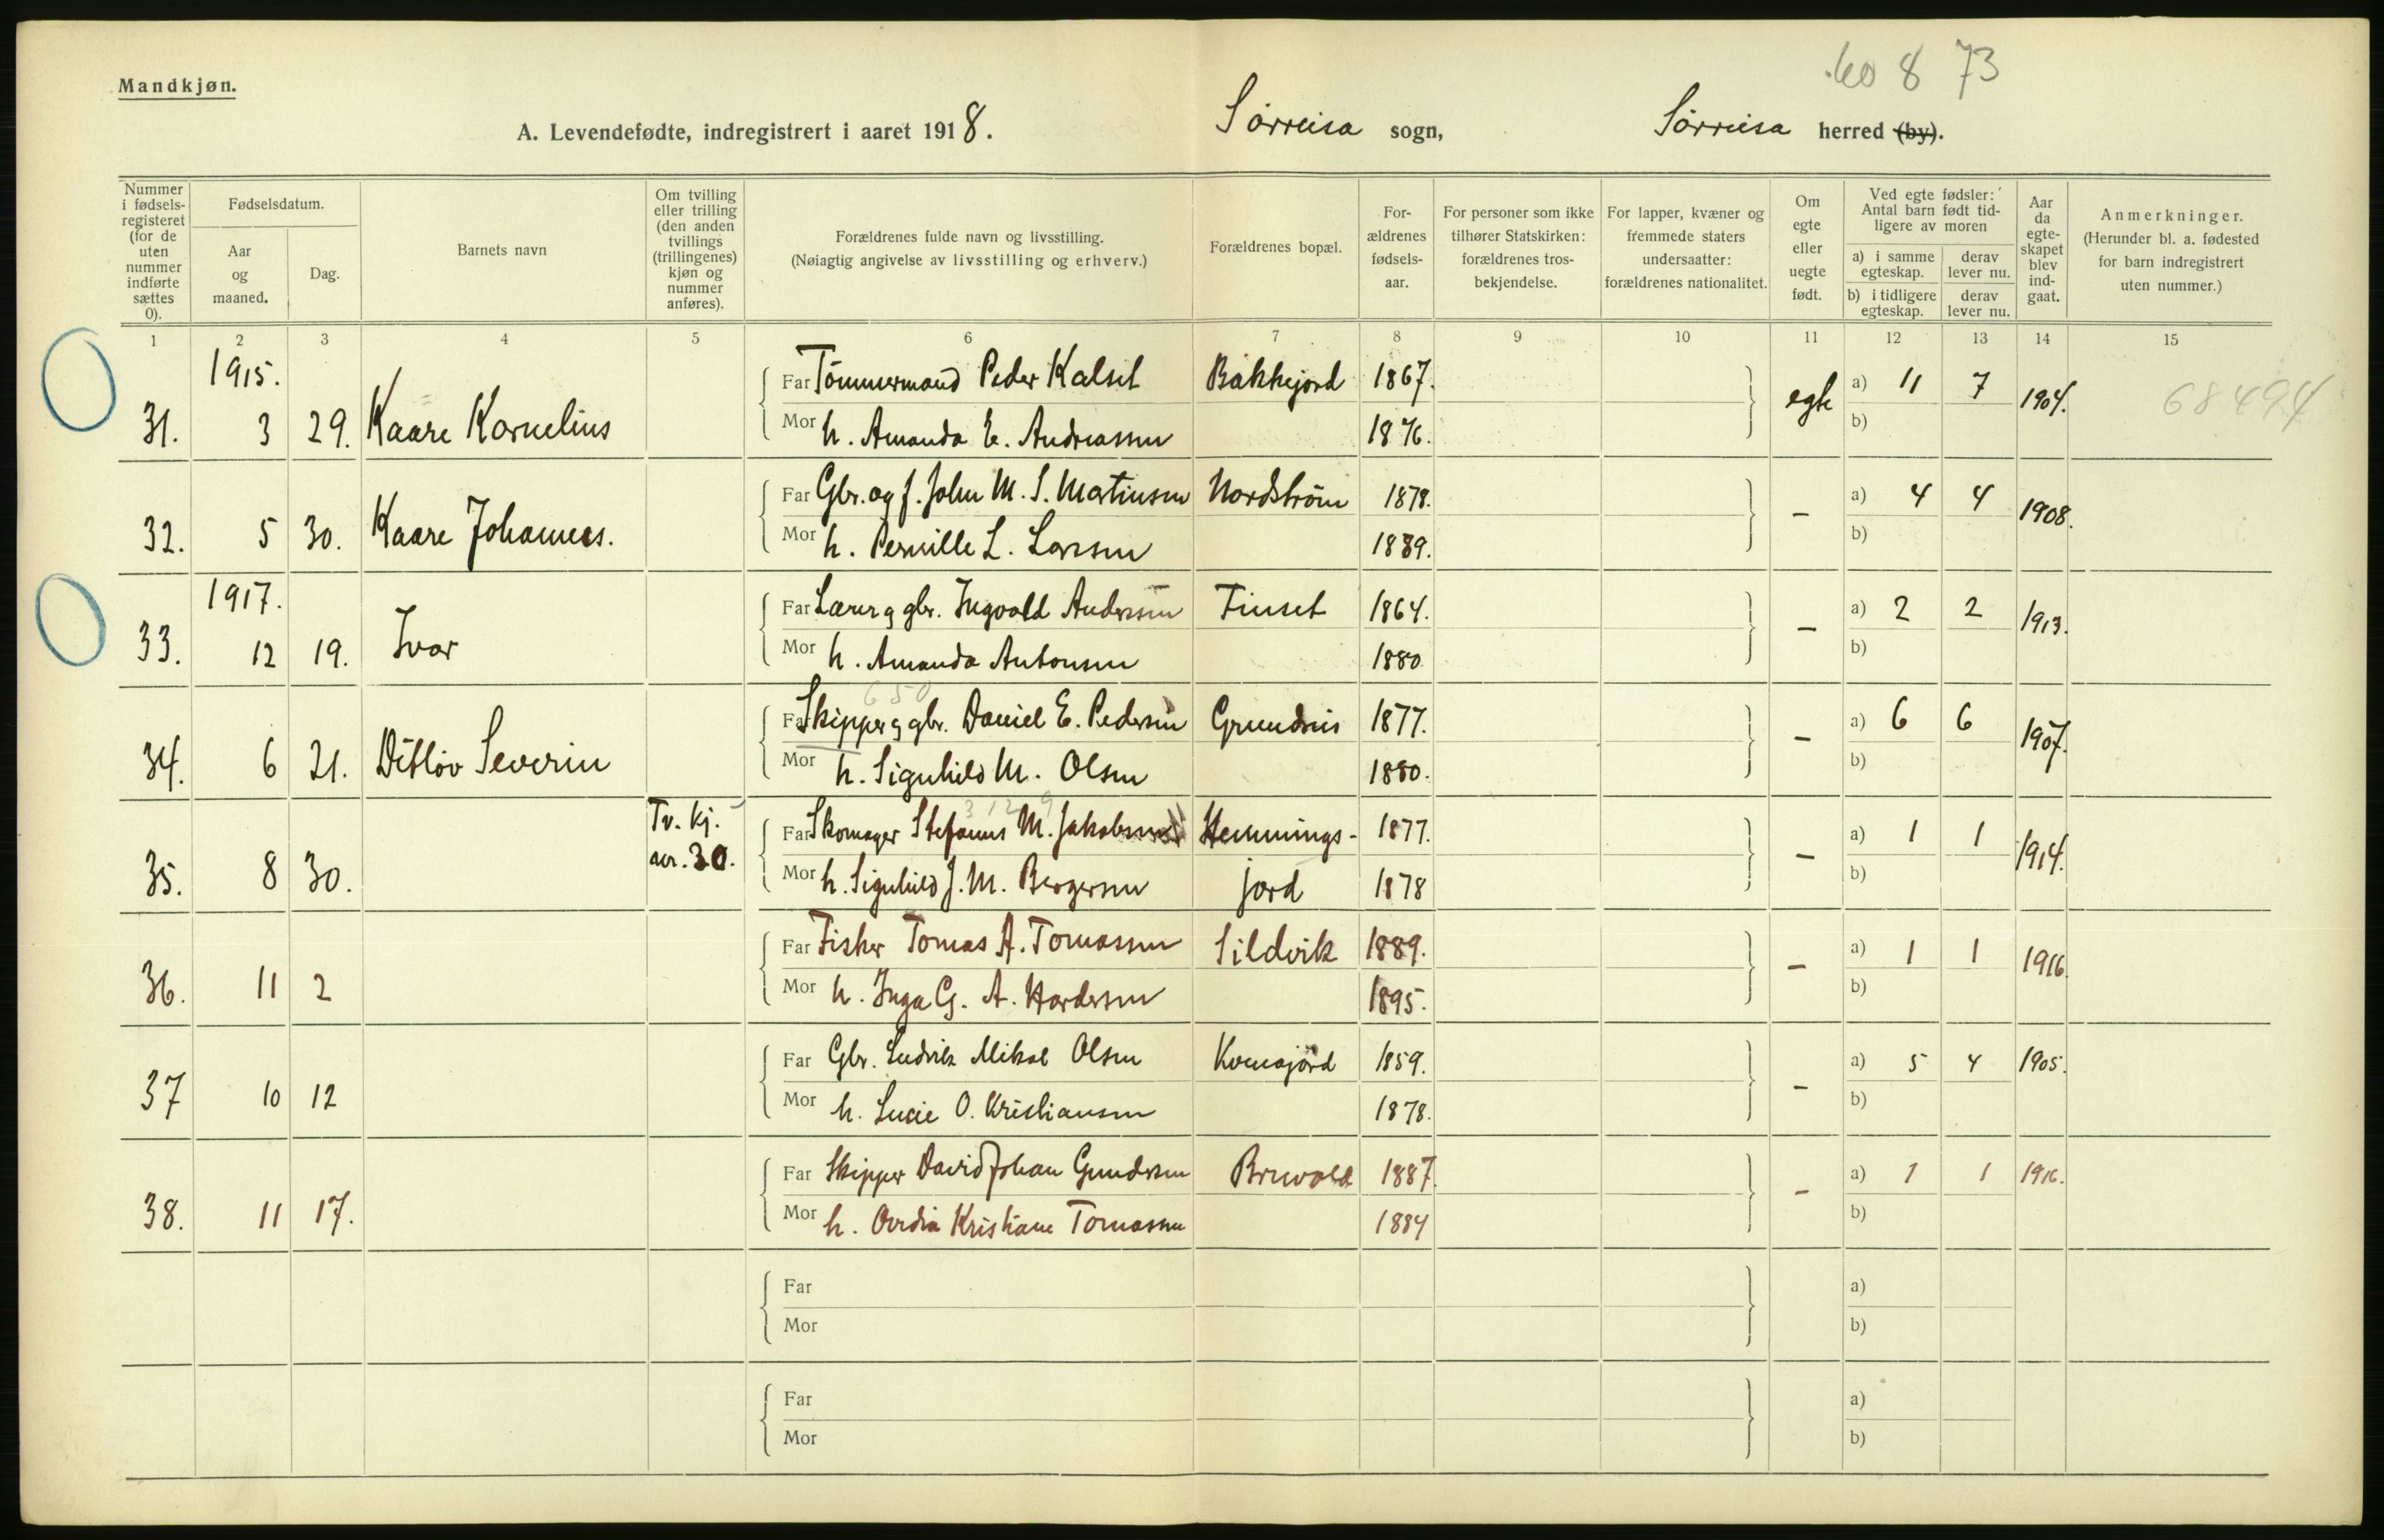 60 8 73
Mandkjøn.
A. Levendefødte, indregistrert i aaret 1918. Sørreisa sogn, Sørreisa herred (by).
Nummer i fødsels-registeret (for de uten nummer indførte sættes 0).
Fødselsdatum.
Aar og maaned.
Dag.
Barnets navn
Om tvilling eller trilling (den anden tvillings (trillingenes) kjøn og nummer anføres).
Forældrenes fulde navn og livsstilling.
(Nøiagtig angivelse av livsstilling og erhverv.)
Forældrenes bopæl.
For-ældrenes fødsels-aar.
For personer som ikke tilhører Statskirken: forældrenes tros-bekjendelse.
For lapper, kvæner og fremmede staters undersaatter: forældrenes nationalitet.
Om egte eller uegte født.
Ved egte fødsler: Antal barn født tid-ligere av moren
a) i samme egteskap.
derav lever nu.
b) i tidligere egteskap.
derav lever nu.
Aar da egte-skapet blev ind-gaat.
Anmerkninger.
(Herunder bl. a. fødested for barn indregistrert uten nummer.)
1 2 3 4 5 6 7 8 9 10 11 12 13 14 15
1915.
Far Tømmermand Peder Kalset Bakkejord 1867. egte a) 11 7 1904. 68494
31. 3 29. Kaare Kornelius Mor h. Amanda E. Andreassen 1876. b)
Far Gbr. og f. John M. S. Martinsen Nordstrøm 1878. – a) 4 4 1908.
32. 5 30. Kaare Johannes. Mor h. Pernille L. Larsen 1889. b)
1917.
Far Lærer g gbr. Ingvald Andersen Finset 1864. – a) 2 2 1913.
33. 12 19. Ivar Mor h. Amanda Antonsen 1880 b)
650
Far Skipper g gbr. Daniel E. Pedersen Grundnes 1877. – a) 6 6 1907.
34. 6 21. Ditløv Severin Mor h. Signhild M. Olsen 1880. b)
3129
Tv. kj. Far Skomager Stefanus M. Jakobsen Hemmings- 1877. – a) 1 1 1914.
35. 8 30. nr. 30. Mor h. Signhild J. M. Bergersen jord 1878 b)
Far Fisker Tomas A. Tomassen Sildvik 1889. – a) 1 1 1916
36. 11 2 Mor h. Inga G. A. Hardersen 1895. b)
Far Gbr. Ludvik Mikal Olsen Kvenajord 1859. – a) 5 4 1905.
37 10 12 Mor h. Lucie O. Kristiansen 1878. b)
Far Skipper David Johan Gundersen Brevold 1887. – a) 1 1 1916.
38. 11 17. Mor h. Ovedia Kristiane Tomassen 1884 b)
Far a)
Mor b)
Far a)
Mor b)